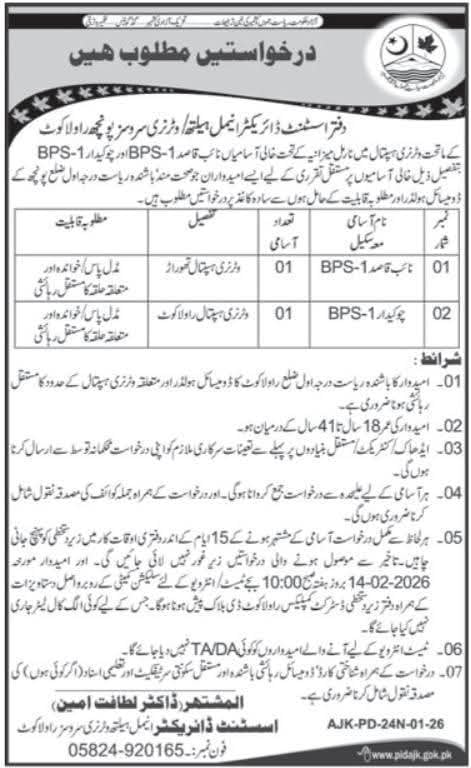 آزاد حکومت ریاست جموں و کشمیر
درخواستیں مطلوب ہیں
دفتر اسسٹنٹ ڈائریکٹر انیمل ہیلتھ/وٹرنری سروسز پونچھ راولاکوٹ
کے ماتحت وٹرنری ہسپتال میں نارمل میزانیہ کے تحت خالی آسامیاں نائب قاصد BPS-1 اور چوکیدار BPS-1
بتفصیل ذیل خالی آسامیوں پر مستقل تقرری کے لیے ایسے امیدواران جو صحت مند باشندہ ریاست درجہ اول ضلع پونچھ کے
ڈومیسائل ہولڈر اور مطلوبہ قابلیت کے حامل ہوں سے سادہ کاغذ پر درخواستیں مطلوب ہیں۔
نمبر شمار	نام آسامی معہ سکیل	تعداد آسامی	تفصیل	مطلوبہ قابلیت
01	نائب قاصد BPS-1	01	وٹرنری ہسپتال تھوراڑ	مڈل پاس/خواندہ اور متعلقہ حلقہ کا مستقل رہائشی
02	چوکیدار BPS-1	01	وٹرنری ہسپتال راولاکوٹ	مڈل پاس/خواندہ اور متعلقہ حلقہ کا مستقل رہائشی
شرائط:
01۔ امیدوار کا باشندہ ریاست درجہ اول ضلع راولاکوٹ کا ڈومیسائل ہولڈر اور متعلقہ وٹرنری ہسپتال کے حدود کا مستقل
رہائشی ہونا ضروری ہے۔
02۔ امیدوار کی عمر 18 سال تا 41 سال کے درمیان ہو۔
03۔ ایڈھاک/کنٹریکٹ/مستقل بنیادوں پر پہلے سے تعینات سرکاری ملازم کو اپنی درخواست محکمانہ توسط سے ارسال کرنا
ہوں گی۔
04۔ ہر آسامی کے لیے علیحدہ سے درخواست جمع کروانا ہوگی۔ اور درخواست کے ہمراہ جملہ کوائف کی مصدقہ نقول شامل
کرنا ضروری ہوں گی۔
05۔ ہر لحاظ سے مکمل درخواست آسامی کے مشتہر ہونے کے 15 ایام کے اندر دفتری اوقات کار میں زیر دستخطی کو پہنچ جانی
چاہیں۔ تاخیر سے موصول ہونے والی درخواستیں زیر غور نہیں لائی جائیں گی۔ اور امیدوار مورخہ
14-02-2026 بروز ہفتہ صبح 10:00 بجے ٹیسٹ/انٹرویو کے لئے سلیکشن کمیٹی کے روبرو اصل دستاویزات
کے ہمراہ دفتر زیر دستخطی ڈسٹرکٹ کمپلیکس راولاکوٹ ڈی بلاک پیش ہونا ہوگا۔ جس کے لیے کوئی الگ کال لیٹر جاری
نہیں کیا جائے گا۔
06۔ ٹیسٹ انٹرویو کے لیے آنے والے امیدواروں کو کوئی TA/DA نہیں دیا جائے گا۔
07۔ درخواست کے ہمراہ شناختی کارڈ، ڈومیسائل رہائشی باشندہ اور مستقل سکونتی سرٹیفکیٹ اور تعلیمی اسناد (اگر کوئی ہوں) کی
مصدقہ نقول شامل کرنا ضروری ہیں۔
المشتہر (ڈاکٹر لطافت امین)
اسسٹنٹ ڈائریکٹر انیمل ہیلتھ وٹرنری سروسز راولاکوٹ
فون نمبر: 05824-920165
AJK-PD-24N-01-26
www.pidajk.gok.pk